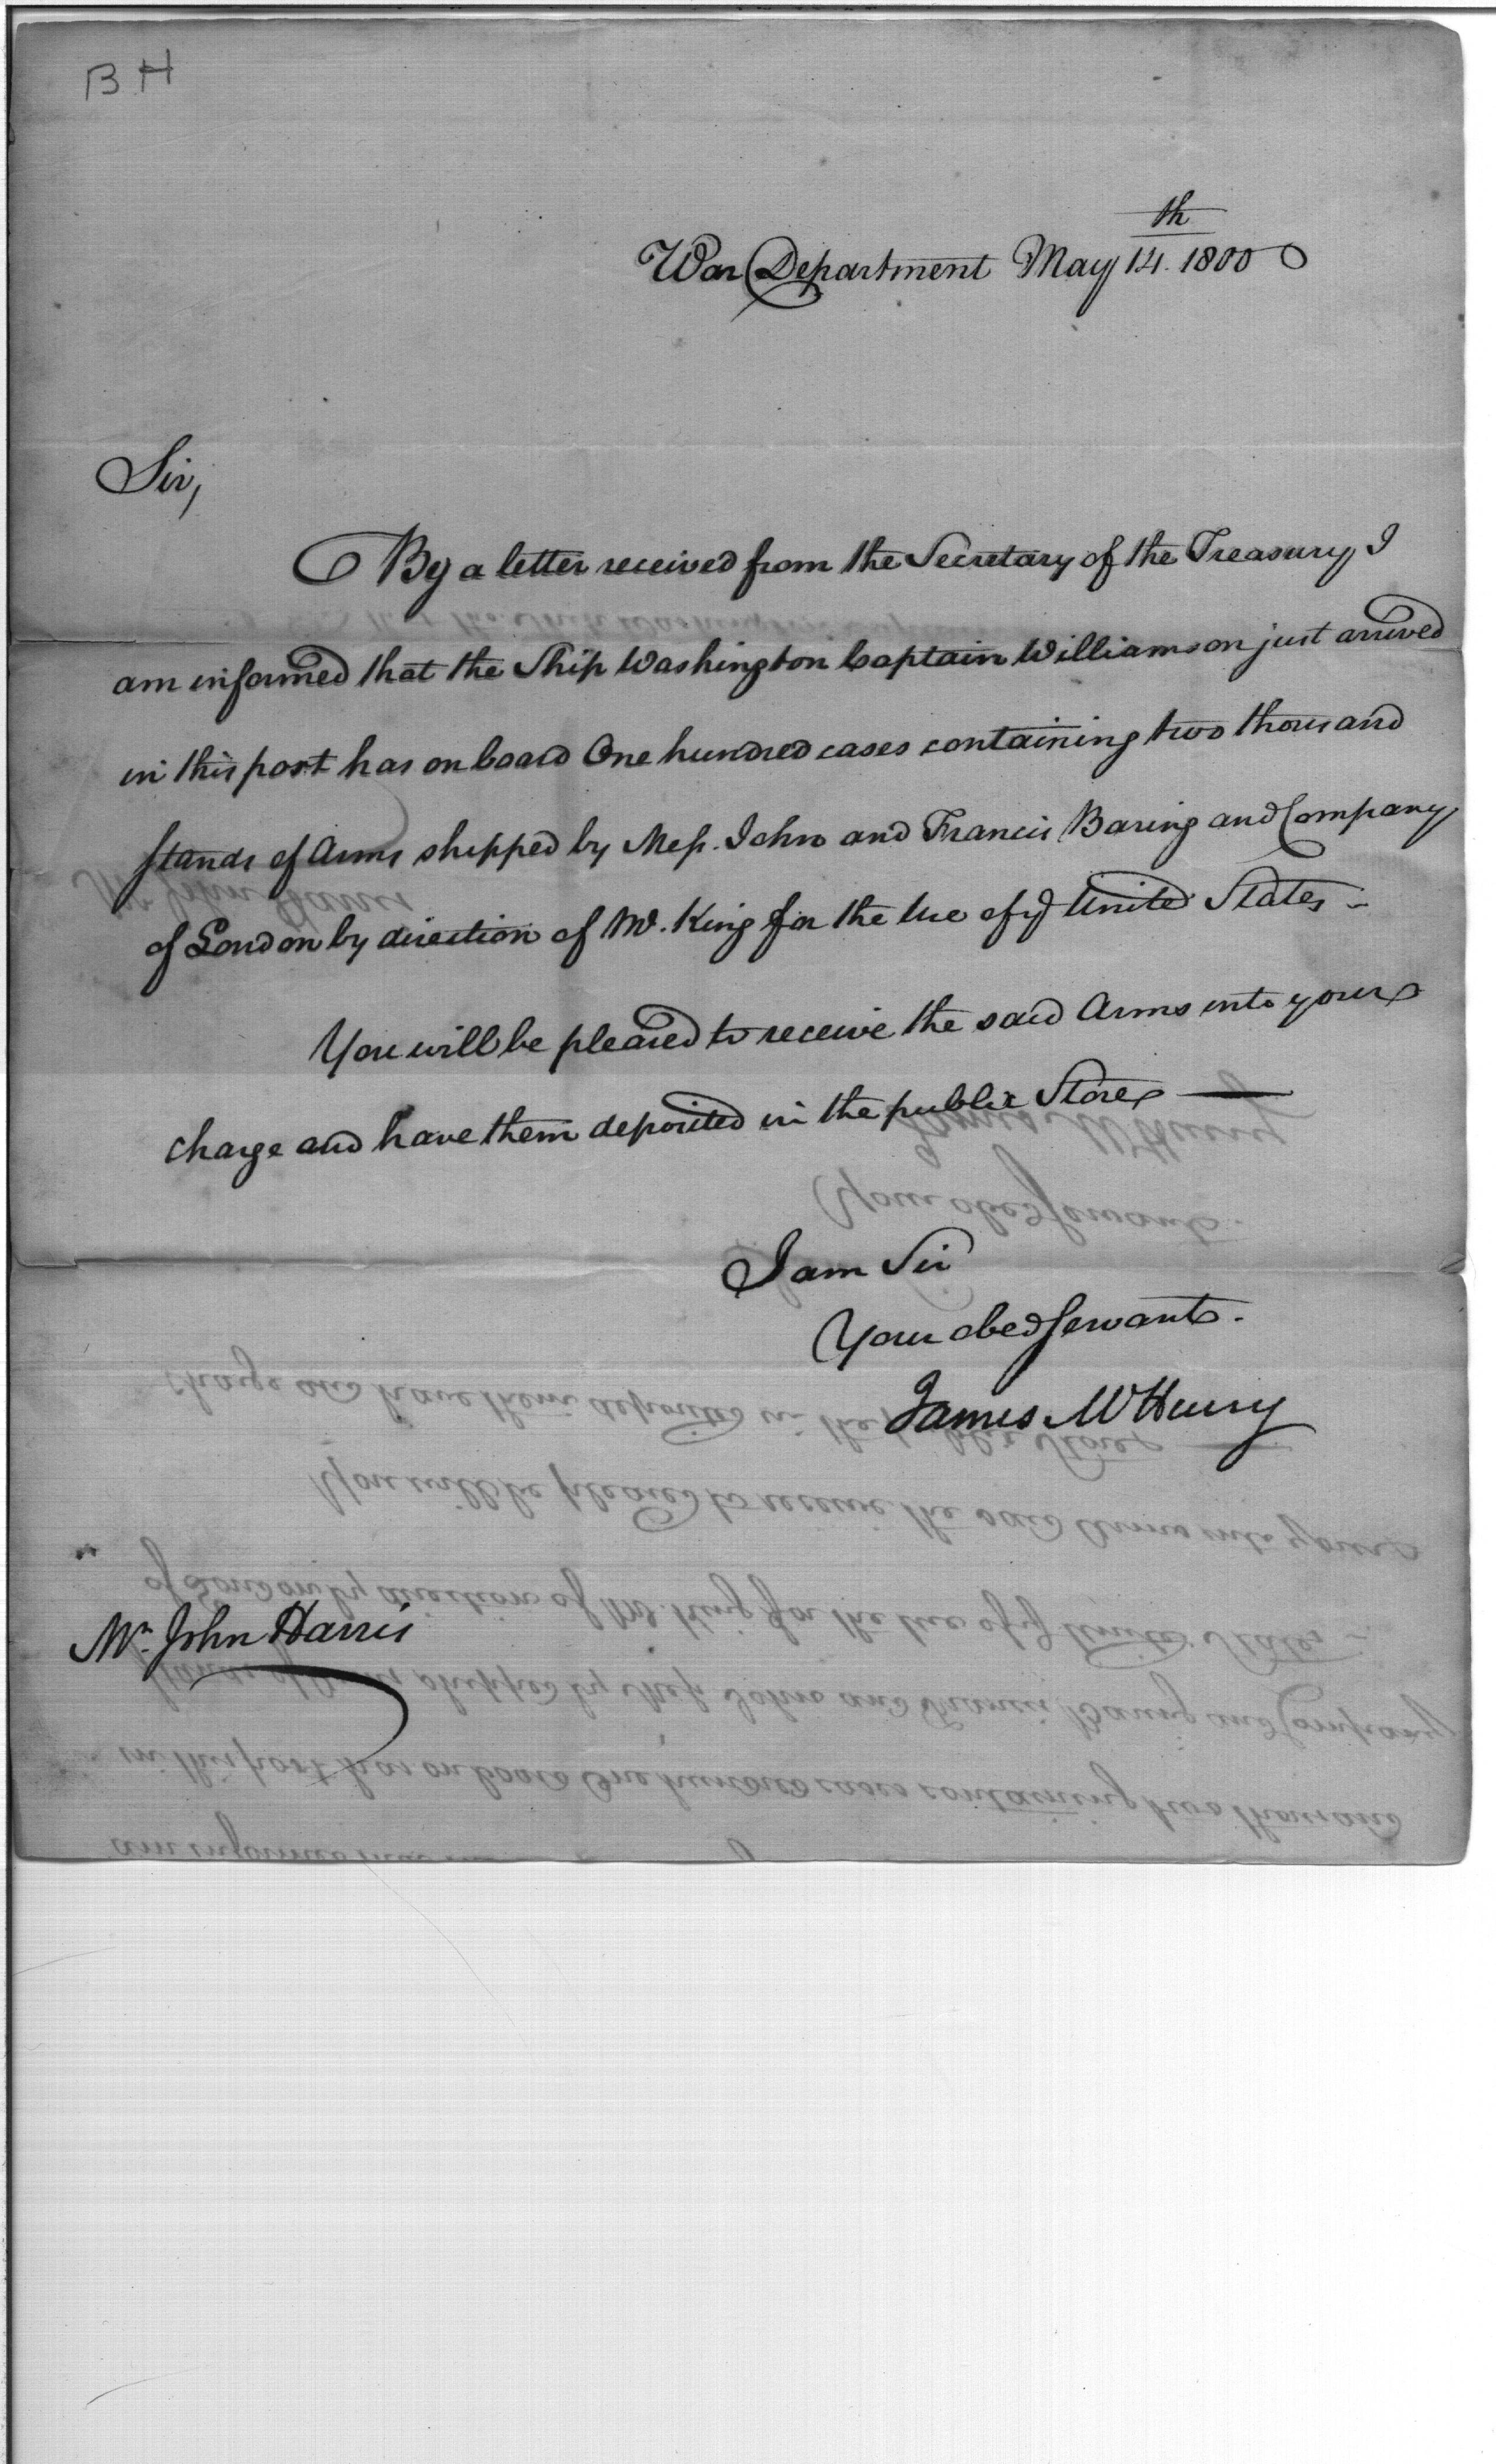 BH
War Department May 14th. 1800
Sir,
By a letter received from the Secretary of the Treasury I
am informed that the Ship Washington Captain Williamson just arrived
in this port has on board One hundred cases containing two thousand
stands of Arms shipped by Mess. John and Francis Baring and Company
of London by direction of Mr. King for the Use of ye United States -
You will be pleased to receive the said Arms into your
charge and have them deposited in the public Store —
I am Sir
Your obed servant.
James McHenry
Mr. John Harris